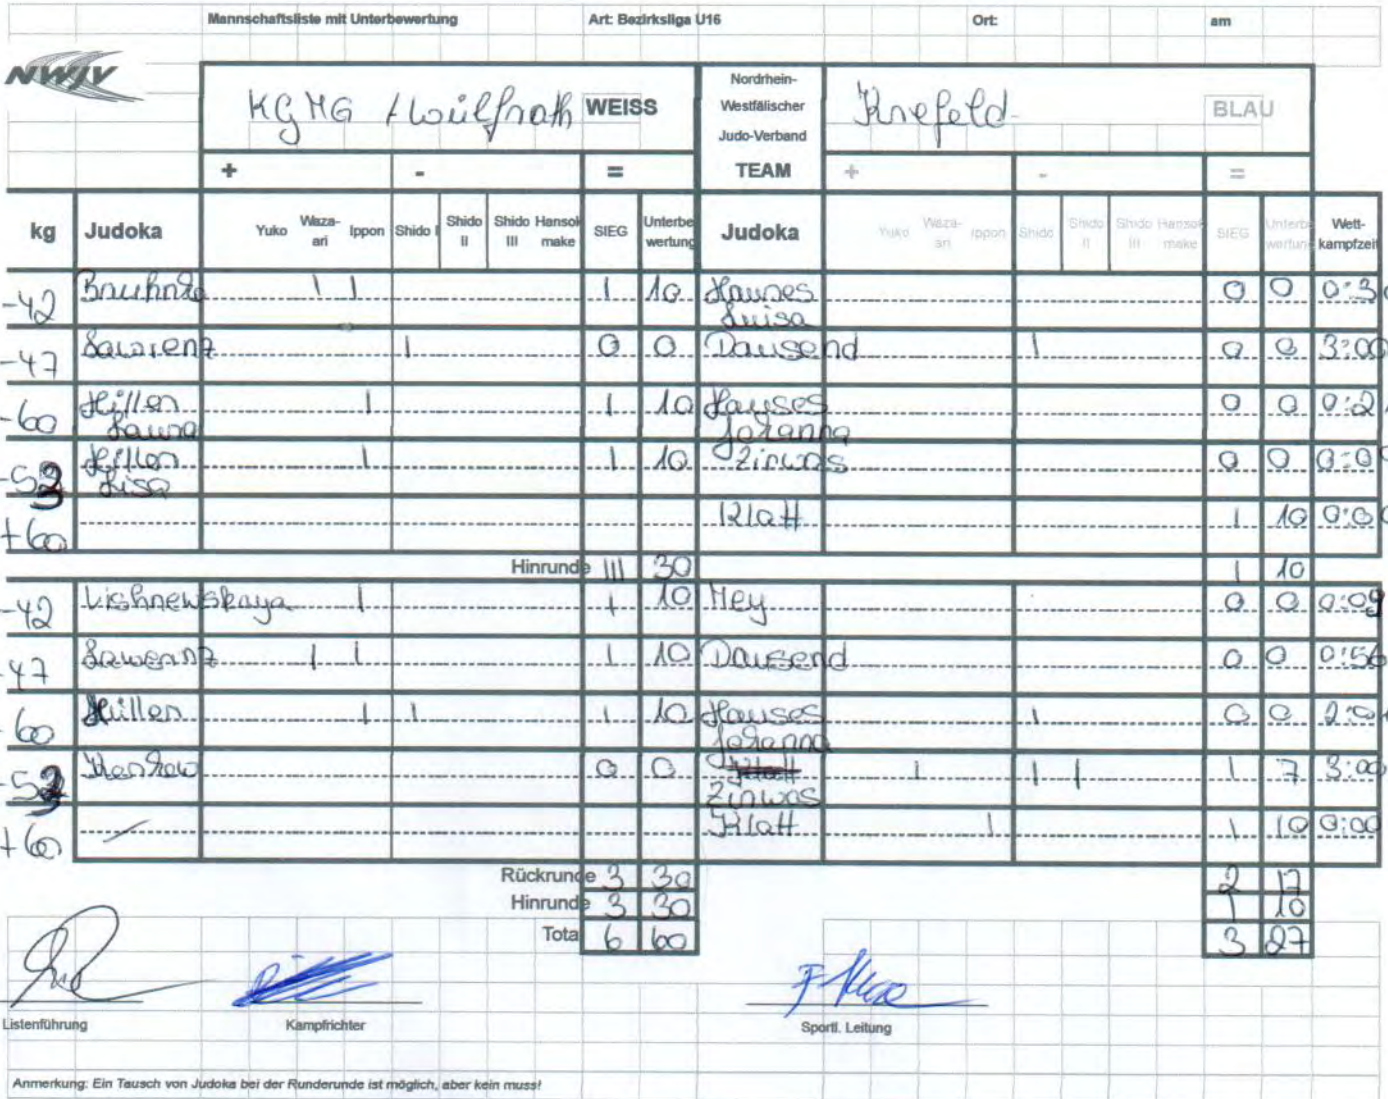 Mannschaftsliste mit Unterbewertung Art: Bezirksliga U16 Ort: am
NWJV
KG MG / Wülfrath WEISS Nordrhein-Westfälischer Judo-Verband TEAM Krefeld BLAU
+ - = + - =
kg Judoka Yuko Waza-ari Ippon Shido I Shido II Shido III Hansokumake SIEG Unterbewertung Judoka Yuko Waza-ari Ippon Shido Shido II Shido III Hansokumake SIEG Unterbewertung Wettkampfzeit
-42 | | 1 10 Hauses Luisa 0 0 0:30
-47 Lawrenz | 0 0 Dausend | 0 0 3:00
-60 Hillen Laura | 1 10 Hauses Johanna 0 0 0:2
-53 Hillen Lisa | 1 10 Zirwas 0 0 0:0
+60 Klatt 1 10 0:00
Hinrunde III 30 1 10
-42 Vishnewskaya | 1 10 Mey 0 0 0:09
-47 Lawrenz | | 1 10 Dausend 0 0 0:56
-60 Hillen | | 1 10 Hauses Johanna | 0 0 2:0
-53 0 0 Zirwas | | | 1 7 3:00
+60 — Klatt | 1 10 0:00
Rückrunde 3 30 2 17
Hinrunde 3 30 1 10
Total 6 60 3 27
Listenführung Kampfrichter Sportl. Leitung
Anmerkung: Ein Tausch von Judoka bei der Runderunde ist möglich, aber kein muss!